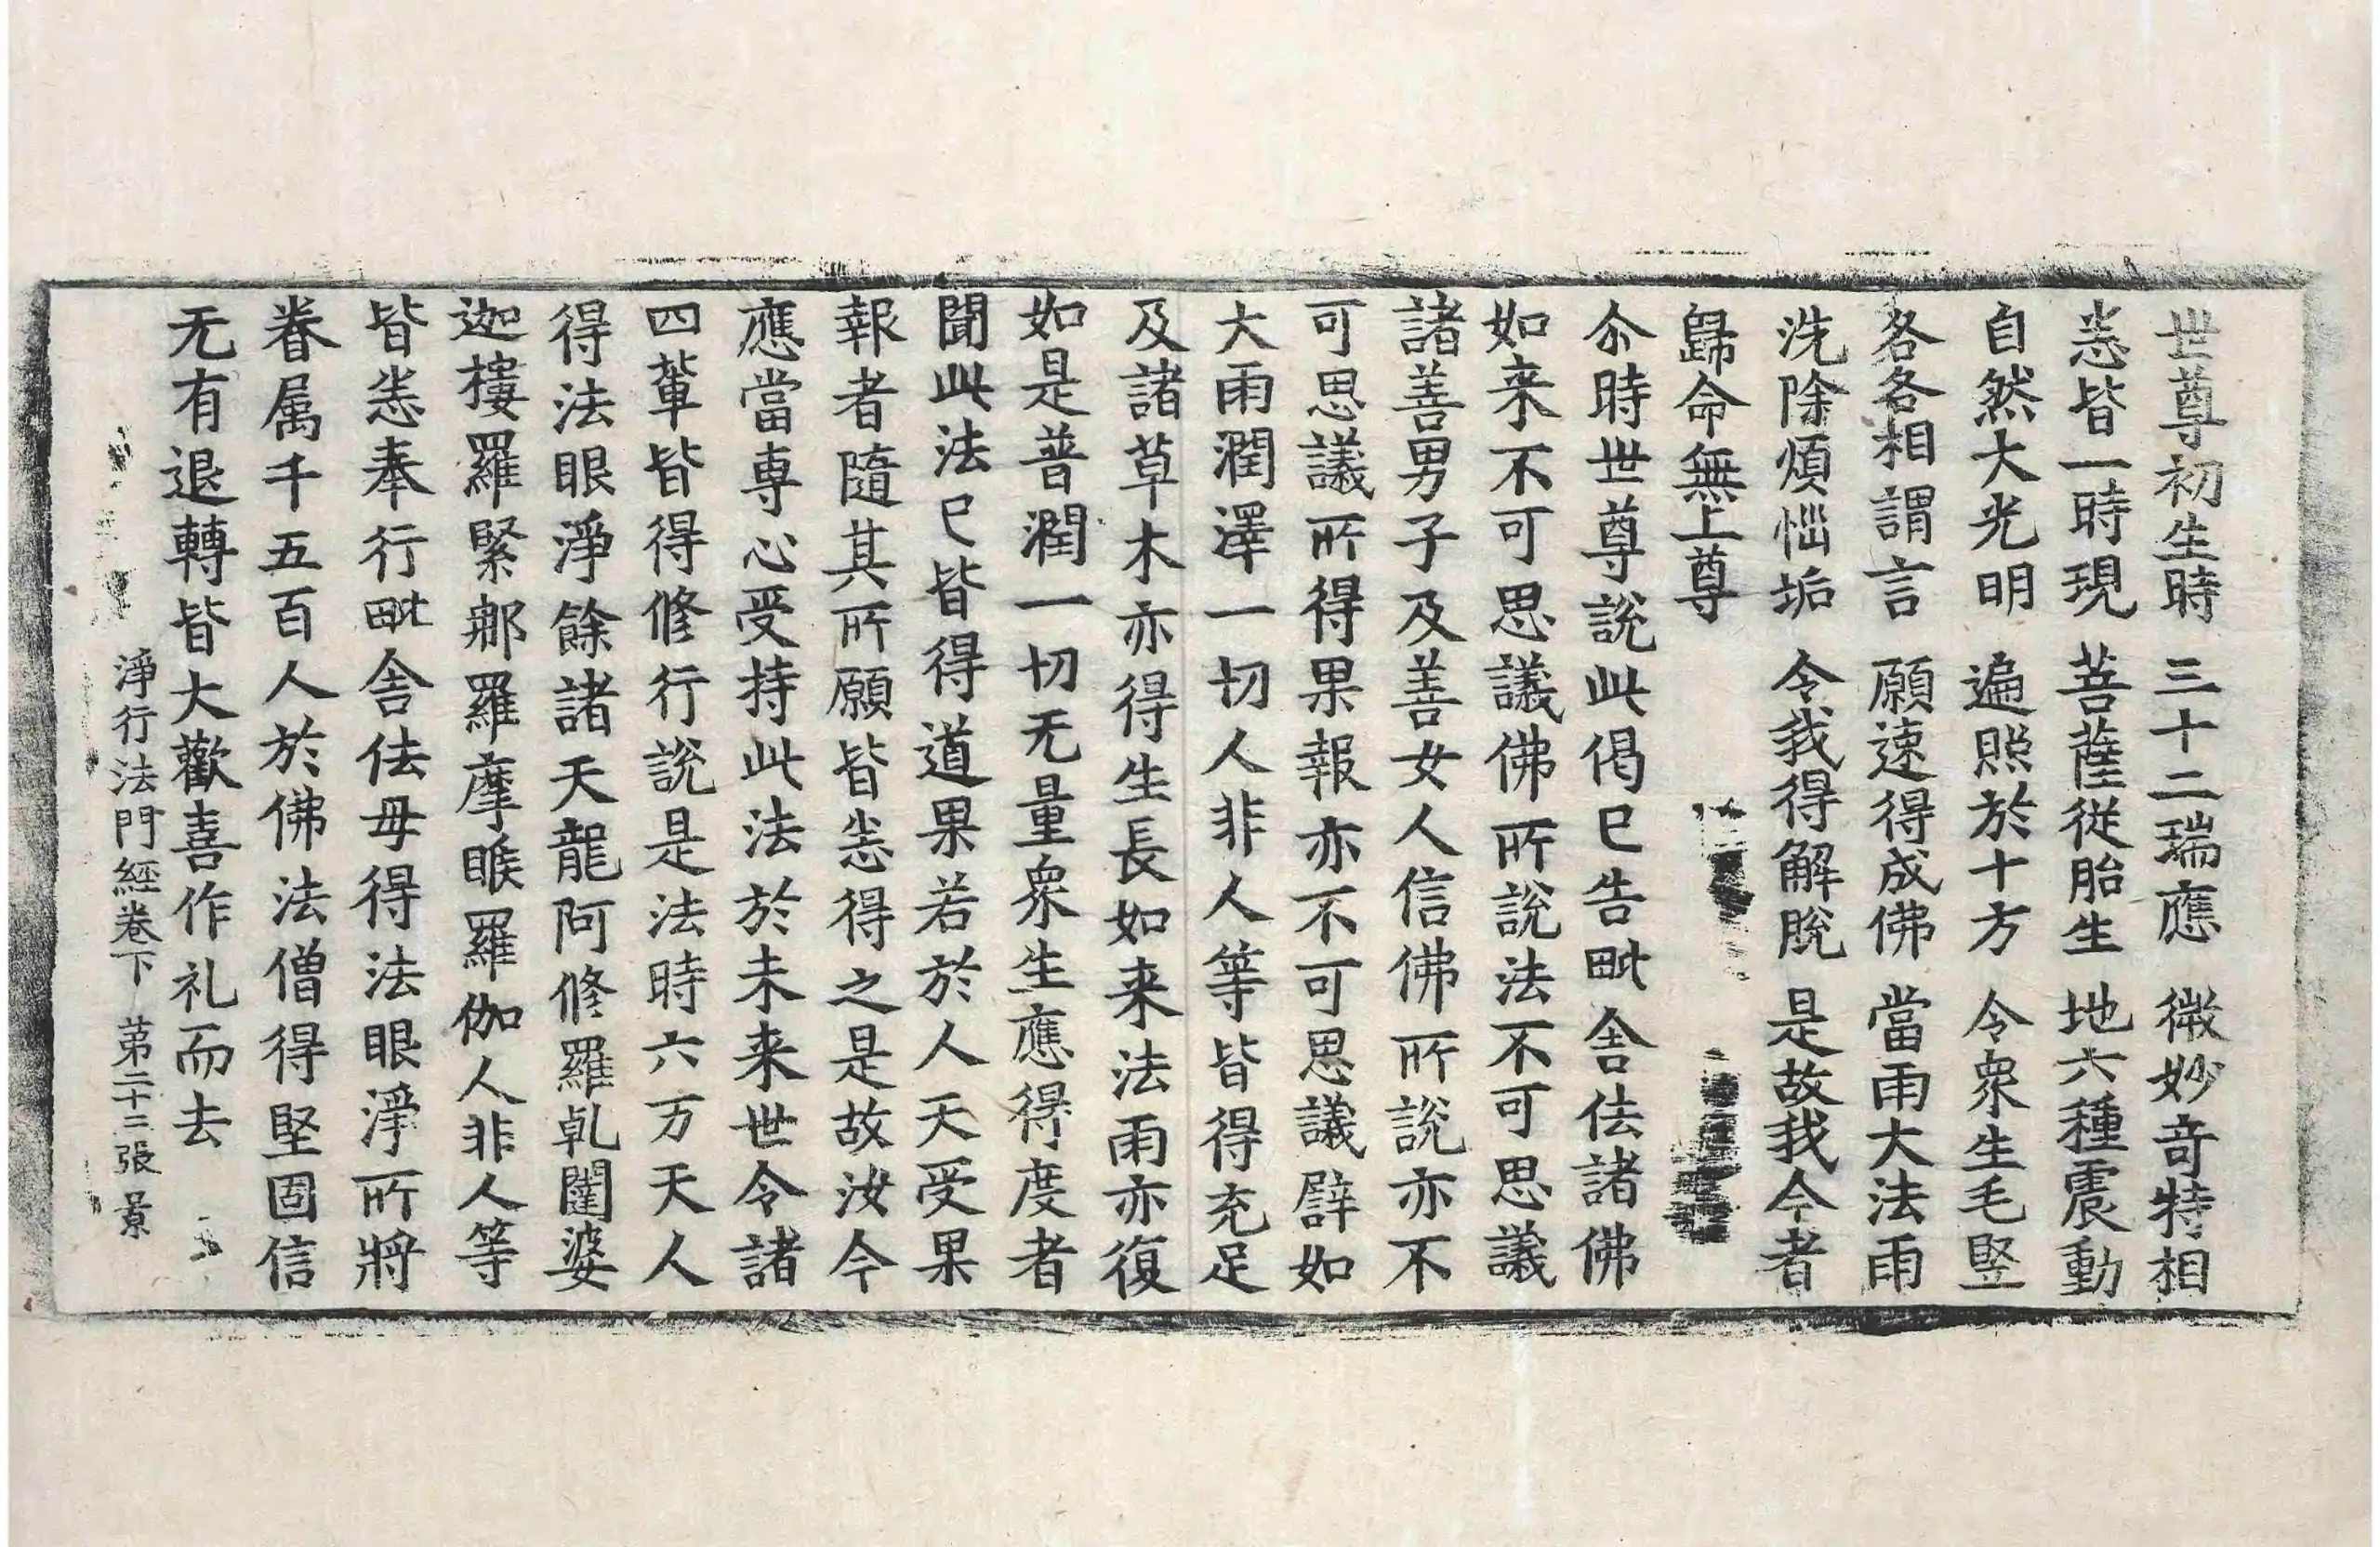 世尊初生時　三十二瑞應　微妙奇特相
悉皆一時現　菩薩從胎生　地六種震動
自然大光明　遍照於十方　令衆生毛竪
各各相謂言　願速得成佛　當雨大法雨
洗除煩惱垢　令我得解脫　是故我今者
歸命無上尊
尒時世尊說此偈已告毗舍佉諸佛
如来不可思議佛所說法不可思議
諸善男子及善女人信佛所說亦不
可思議所得果報亦不可思議辟如
大雨潤澤一切人非人等皆得充足
及諸草木亦得生長如来法雨亦復
如是普潤一切无量衆生應得度者
聞此法已皆得道果若於人天受果
報者隨其所願皆悉得之是故汝今
應當專心受持此法於未来世令諸
四輩皆得修行說是法時六万天人
得法眼淨餘諸天龍阿修羅乹闥婆
迦樓羅緊那羅摩睺羅伽人非人等
皆悉奉行毗舍佉母得法眼淨所將
眷属千五百人於佛法僧得堅固信
无有退轉皆大歡喜作礼而去
淨行法門經卷下　第二十二張　景